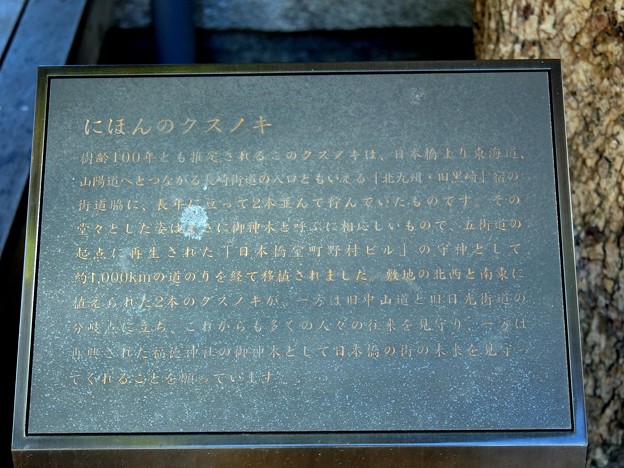 にほんのクスノキ
樹齢100年とも推定されるこのクスノキは、日本橋より東海道、
山陽道へとつながる長崎街道の入口ともいえる「北九州・旧黒崎」宿の
街道脇に、長年に亘って2本並んで佇んでいたものです。その
堂々とした姿はまさに御神木と呼ぶに相応しいもので、五街道の
起点に再生された「日本橋室町野村ビル」の守神として
約1,000kmの道のりを経て移植されました。敷地の北西と南東に
植えられた2本のクスノキが、一方は旧中山道と旧日光街道の
分岐点に立ち、これからも多くの人々の往来を見守り、一方は
再興された福徳神社の御神木として日本橋の街の未来を見守っ
てくれることを願っています。